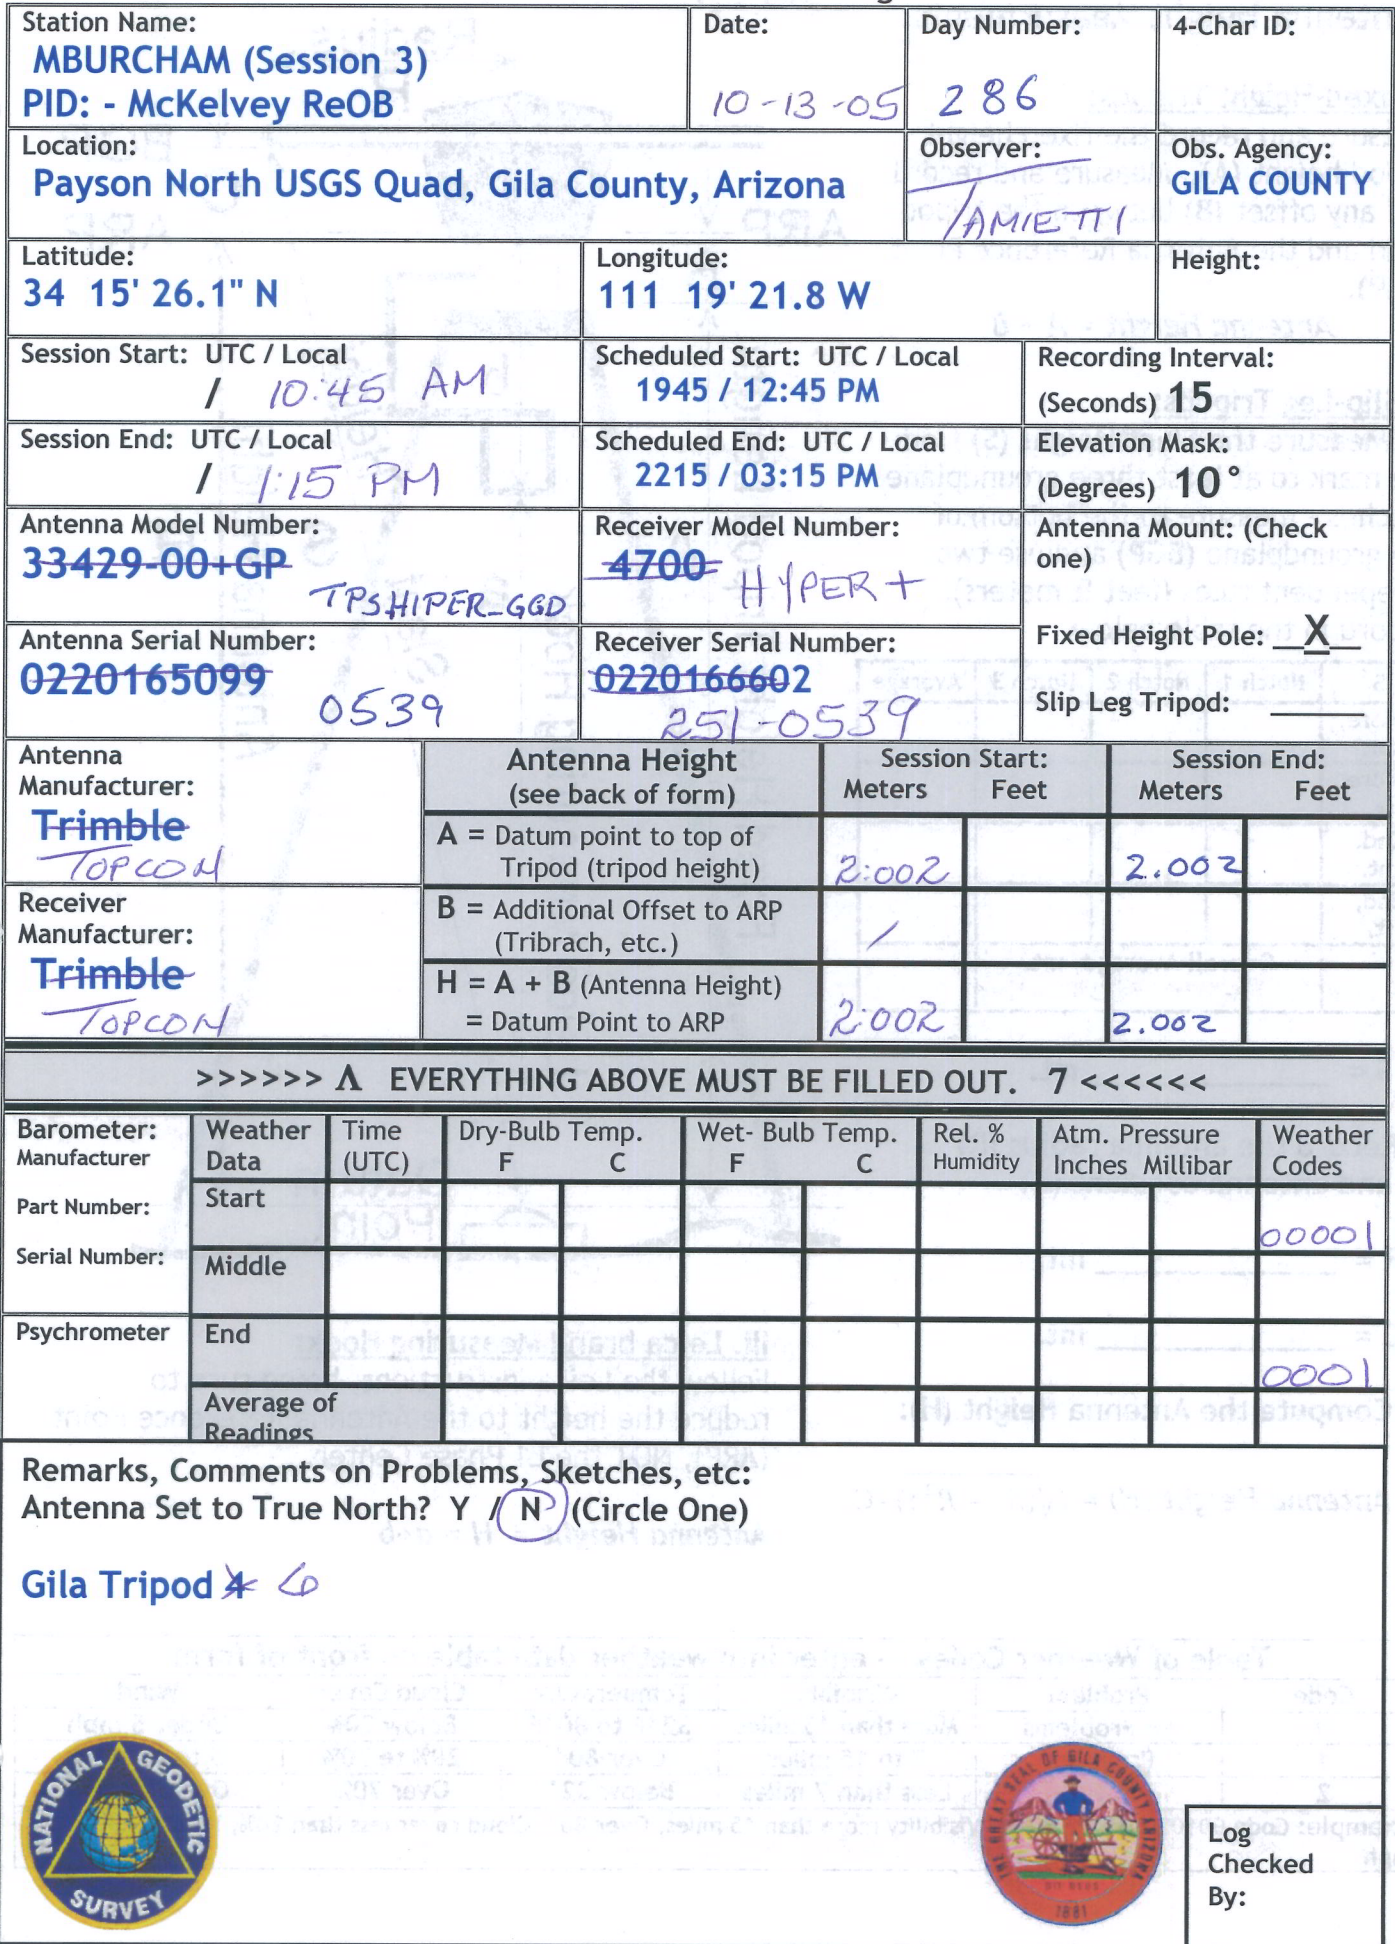 Station Name:
MBURCHAM (Session 3)
PID: - McKelvey ReOB
Date:
10-13-05
Day Number:
286
4-Char ID:
Location:
Payson North USGS Quad, Gila County, Arizona
Observer:
TAMIETTI
Obs. Agency:
GILA COUNTY
Latitude:
34 15' 26.1" N
Longitude:
111 19' 21.8 W
Height:
Session Start: UTC / Local
/ 10:45 AM
Scheduled Start: UTC / Local
1945 / 12:45 PM
Recording Interval:
(Seconds) 15
Session End: UTC / Local
/ 1:15 PM
Scheduled End: UTC / Local
2215 / 03:15 PM
Elevation Mask:
(Degrees) 10°
Antenna Model Number:
33429-00+GP
TPSHIPER_GGD
Receiver Model Number:
4700
HYPER +
Antenna Mount: (Check
one)
Fixed Height Pole: __X__
Slip Leg Tripod: _____
Antenna Serial Number:
0220165099
0539
Receiver Serial Number:
0220166602
251-0539
Antenna
Manufacturer:
Trimble
TOPCON
Antenna Height
(see back of form)
Session Start:
Meters Feet
Session End:
Meters Feet
A = Datum point to top of
Tripod (tripod height)
2.002
2.002
Receiver
Manufacturer:
Trimble
TOPCON
B = Additional Offset to ARP
(Tribrach, etc.)
/
H = A + B (Antenna Height)
= Datum Point to ARP
2.002
2.002
>>>>>> Λ EVERYTHING ABOVE MUST BE FILLED OUT. 7 <<<<<<
Barometer:
Manufacturer
Part Number:
Serial Number:
Psychrometer
Weather
Data
Time
(UTC)
Dry-Bulb Temp.
F C
Wet- Bulb Temp.
F C
Rel. %
Humidity
Atm. Pressure
Inches Millibar
Weather
Codes
Start
00001
Middle
End
0001
Average of
Readings
Remarks, Comments on Problems, Sketches, etc:
Antenna Set to True North? Y / N (Circle One)
Gila Tripod 4 6
NATIONAL GEODETIC SURVEY
THE GREAT SEAL OF GILA COUNTY ARIZONA
1881
Log
Checked
By: